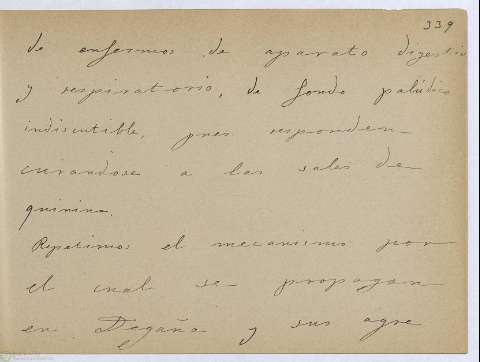 339
de enfermos de aparato digestivo
y respiratorio, de fondo palúdico
indiscutible, pues responden
curandose a las sales de
quinina.
Repetimos el mecanismo por
el cual se propagan
en Degaña y sus agre